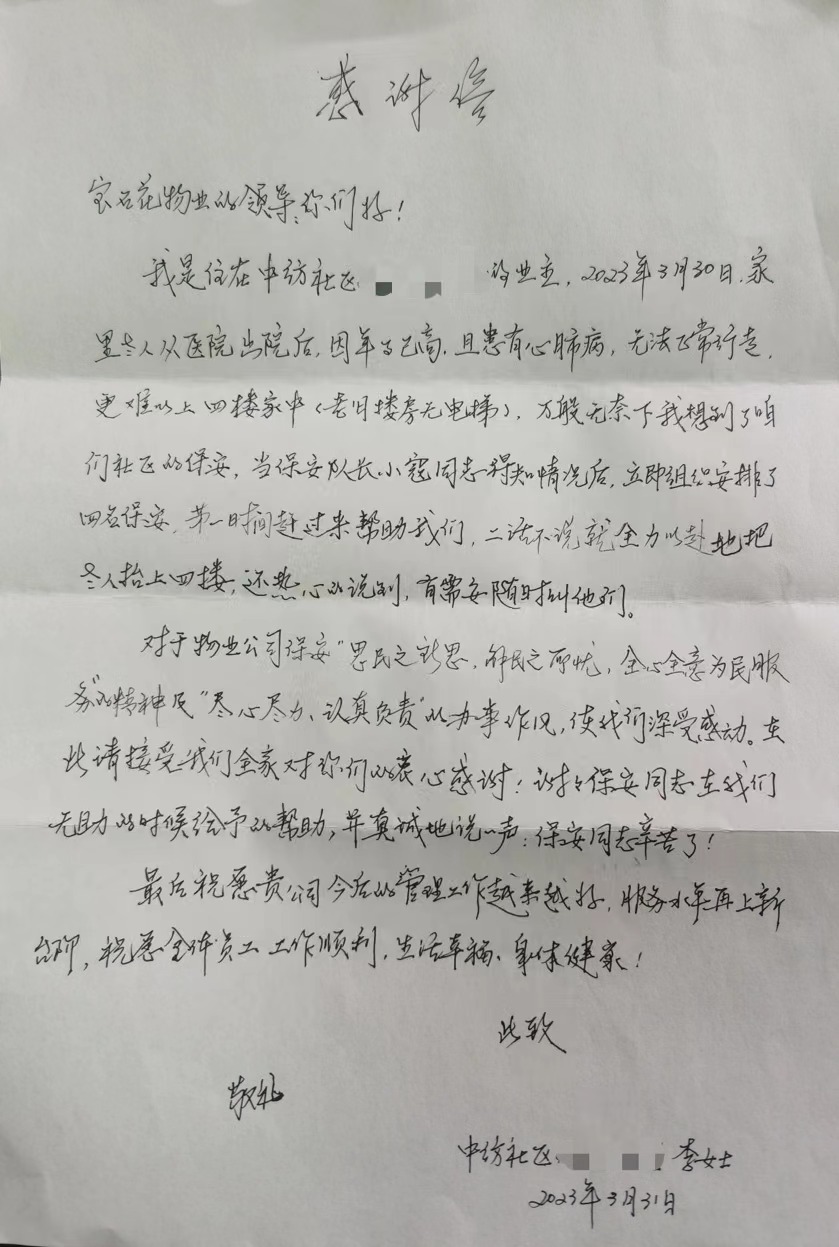 感谢信
宝石花物业的领导:你们好!
我是住在中纺社区 的业主,2023年3月30日,家
里老人从医院出院后,因年事已高,且患有心肺病,无法正常行走,
更难以上四楼家中(老旧楼房无电梯),万般无奈下我想到了咱
们社区的保安,当保安队长小寇同志得知情况后,立即组织安排了
四名保安,第一时间赶过来帮助我们,二话不说就全力以赴地把
老人抬上四楼,还热心的说到,有需要随时叫他们。
对于物业公司保安“思民之所思,解民之所忧,全心全意为民服
务”的精神及“尽心尽力、认真负责”的办事作风,使我们深受感动。在
此请接受我们全家对你们的衷心感谢!谢谢保安同志在我们
无助的时候给予的帮助,并真诚地说一声:保安同志辛苦了!
最后祝愿贵公司今后的管理工作越来越好,服务水平再上新
台阶,祝愿全体员工工作顺利,生活幸福、身体健康!
此致
敬礼
中纺社区 李女士
2023年3月31日